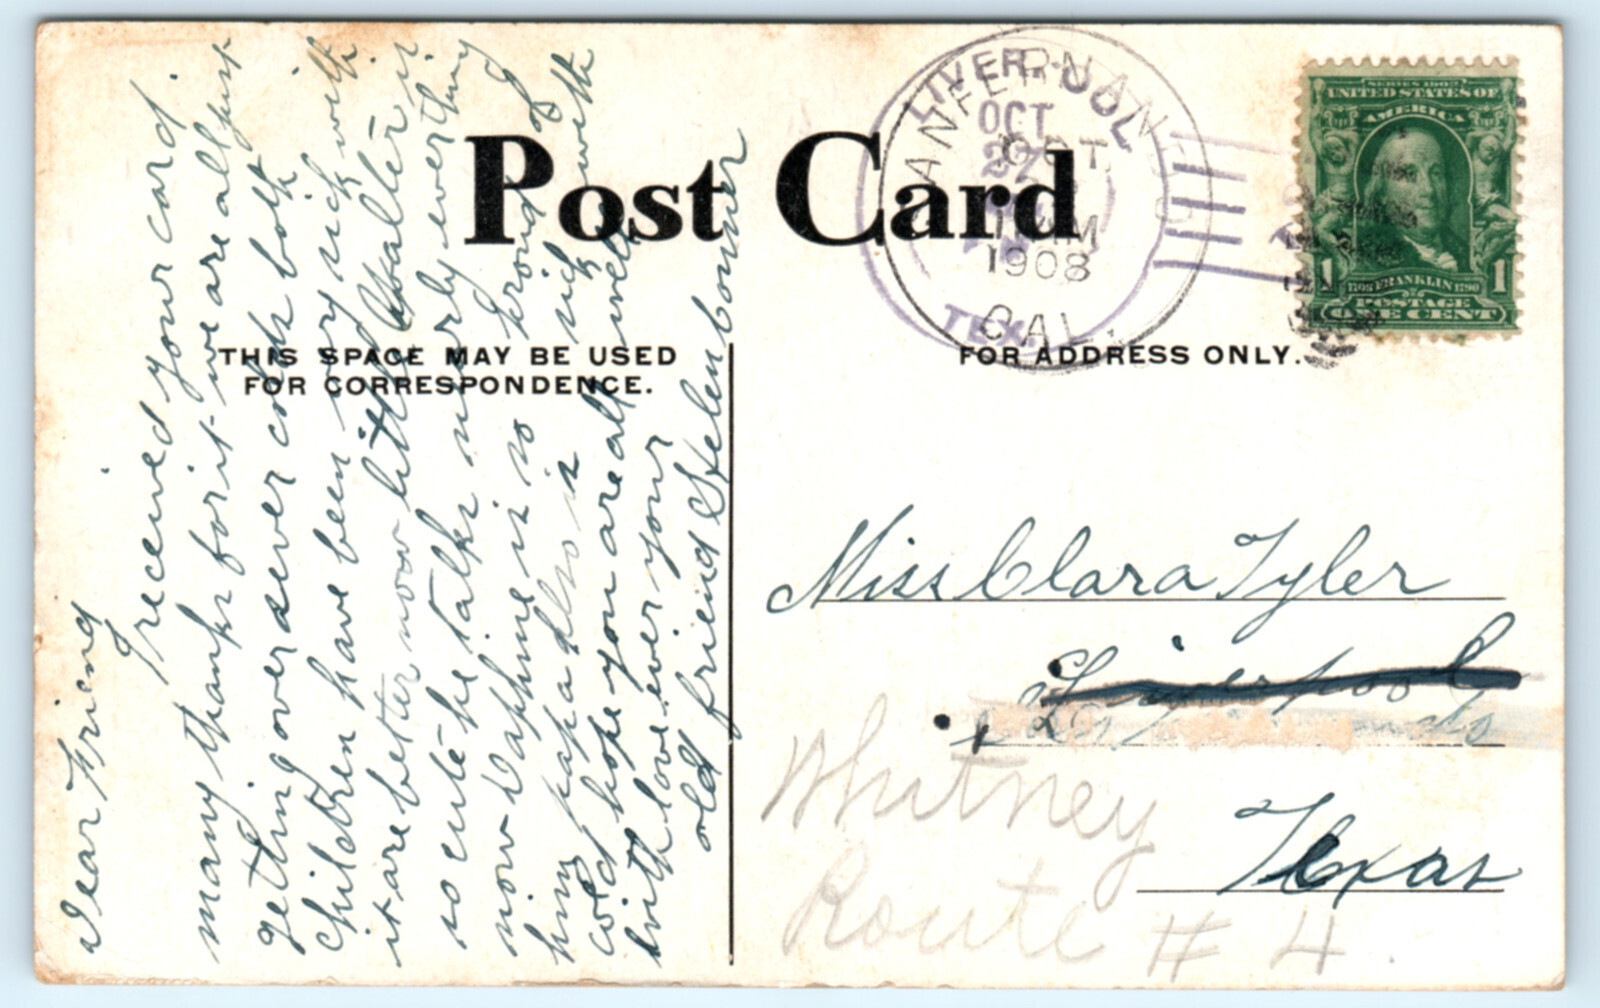 Post Card
THIS SPACE MAY BE USED
FOR CORRESPONDENCE.
FOR ADDRESS ONLY.
Dear Friend
I received your card.
many thanks for it. we are all just
getting over sever colds both
children have been very sick with
it are better now little Walter is
so cute he talks nearly everthing
now Daphine is so proud of
him papa also is sick with
cold hope you are all well
with love ever your
old friend Helen bonner
LIVERPOOL
OCT
27
TEX.
SAN FERNANDO
OCT
1908
CAL.
SERIES 1902
UNITED STATES OF
AMERICA
1 1706 FRANKLIN 1790 1
POSTAGE
ONE CENT
Miss Clara Tyler
Liverpool
Texas
Whitney
Route # 4